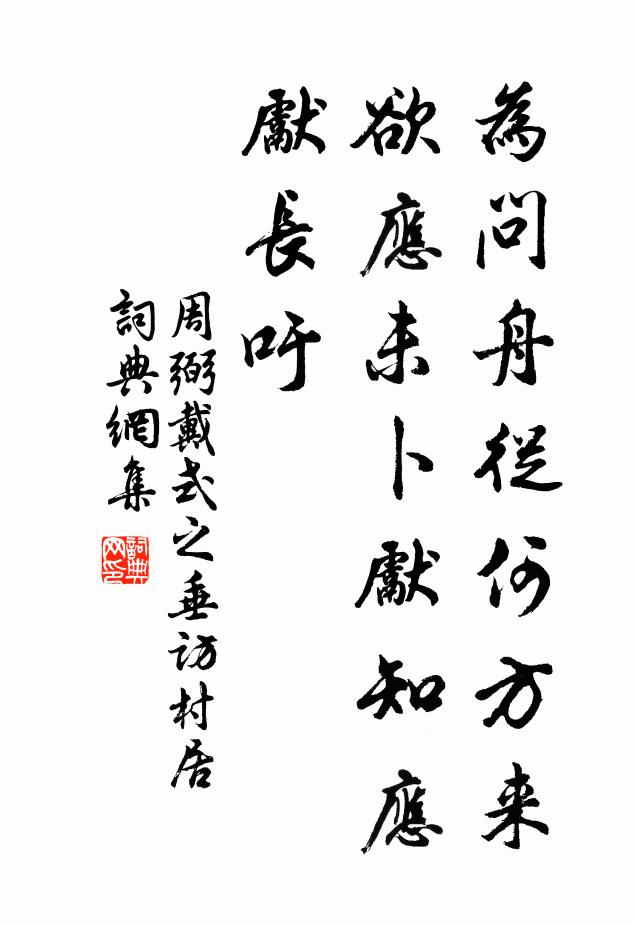 為問舟從何方来
欲應未卜獻知應
獻長吁
周弼戴式之垂訪村居
詞典網集
詞典网印